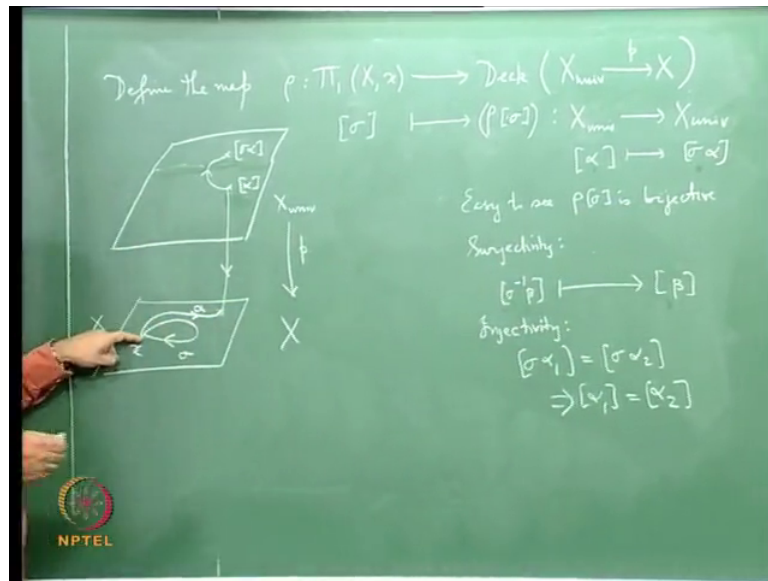 Define the map ρ : Π₁(X, x) ⟶ Deck (X_univ –p→ X)
[σ] ⟼ (ρ[σ]) : X_univ ⟶ X_univ
[α] ⟼ [σα]
Easy to see ρ[σ] is bijective
Surjectivity:
[σ⁻¹β] ⟼ [β]
Injectivity:
[σα₁] = [σα₂]
⇒ [α₁] = [α₂]
[σα]
[α]
X_univ
p
X
X
α
x
σ
NPTEL